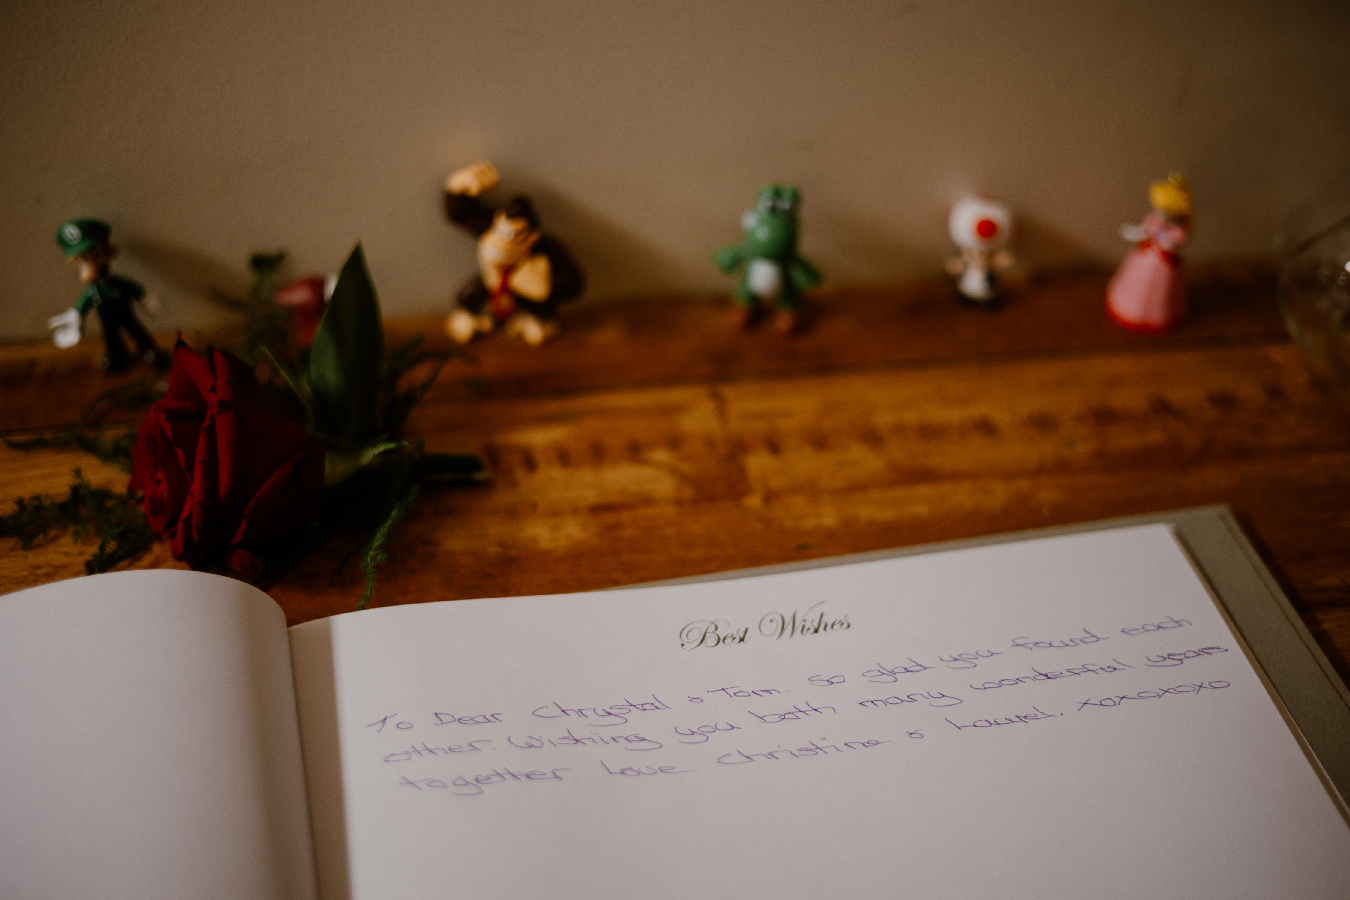 Best Wishes
To Dear Chrystal & Tom. So glad you found each
other. Wishing you both many wonderful years
together. Love Christine & Laurel. xoxoxoxo
L